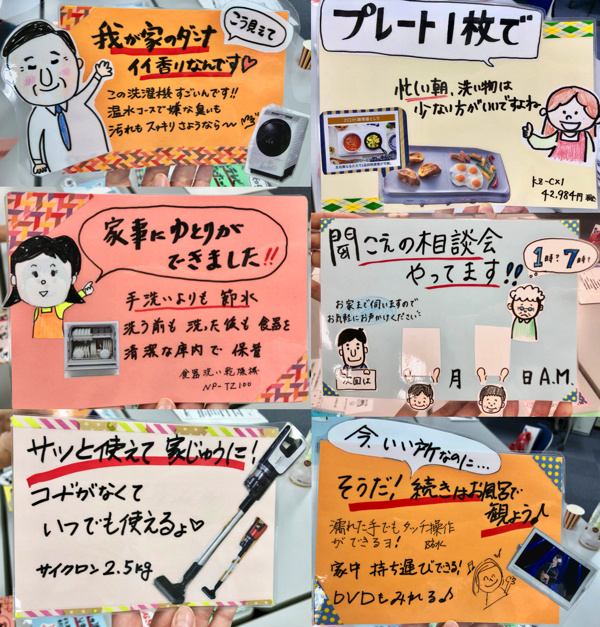 こう見えて
我が家のダンナ
イイ香りなんです♡
この洗濯機すごいんです!!
温水コースで嫌な臭いも
汚れもスッキリさようなら〜
プレート1枚で
忙しい朝、洗い物は
少ない方がいいですよね
KZ-CX1
42,984円
家事にゆとりが
できました!!
手洗いよりも 節水
洗う前も洗った後も食器を
清潔な庫内で保管
食器洗い乾燥機
NP-TZ100
聞こえの相談会
やってます!!
1時?7時?
お家まで伺いますので
お気軽にお声かけください
次回は
月 日 A.M.
サッと使えて家じゅうに!
コードがなくて
いつでも使えるよ♡
サイクロン 2.5kg
今、いい所なのに…
そうだ!続きはお風呂で
観よう♪
濡れた手でもタッチ操作
ができるヨ! 防水
家中 持ち運びできる!
DVDもみれる♪